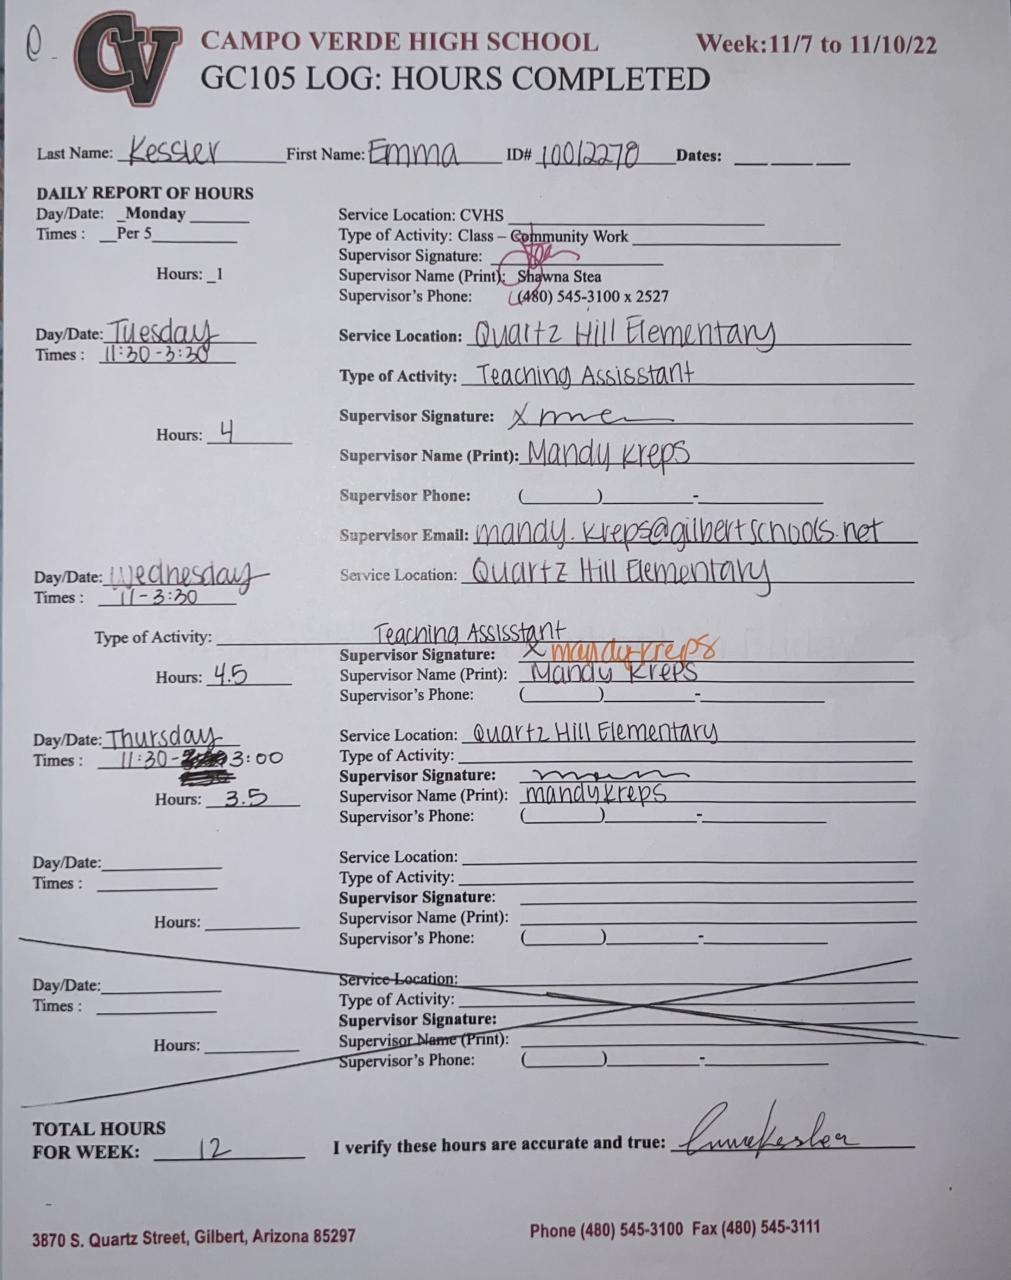 CV CAMPO VERDE HIGH SCHOOL Week:11/7 to 11/10/22
GC105 LOG: HOURS COMPLETED
Last Name: Kessler First Name: Emma ID# 10012278 Dates: ___ ___ ___
DAILY REPORT OF HOURS
Day/Date: _Monday ______ Service Location: CVHS
Times : __Per 5______ Type of Activity: Class – Community Work
Supervisor Signature:
Hours: _1 Supervisor Name (Print): Shawna Stea
Supervisor's Phone: (480) 545-3100 x 2527
Day/Date: Tuesday Service Location: Quartz Hill Elementary
Times : 11:30-3:30
Type of Activity: Teaching Assisstant
Supervisor Signature: x
Hours: 4
Supervisor Name (Print): Mandy Kreps
Supervisor Phone: (______)______-______
Supervisor Email: mandy.kreps@gilbertschools.net
Day/Date: Wednesday Service Location: Quartz Hill Elementary
Times : 11-3:30
Type of Activity: Teaching Assisstant
Supervisor Signature: x mandy kreps
Hours: 4.5 Supervisor Name (Print): Mandy Kreps
Supervisor's Phone: (______)______-______
Day/Date: Thursday Service Location: Quartz Hill Elementary
Times : 11:30- 3:00 Type of Activity:
Supervisor Signature:
Hours: 3.5 Supervisor Name (Print): mandy kreps
Supervisor's Phone: (______)______-______
Day/Date: Service Location:
Times : Type of Activity:
Supervisor Signature:
Hours: Supervisor Name (Print):
Supervisor's Phone: (______)______-______
Day/Date: Service Location:
Times : Type of Activity:
Supervisor Signature:
Hours: Supervisor Name (Print):
Supervisor's Phone: (______)______-______
TOTAL HOURS
FOR WEEK: 12 I verify these hours are accurate and true: Emma Kessler
3870 S. Quartz Street, Gilbert, Arizona 85297 Phone (480) 545-3100 Fax (480) 545-3111